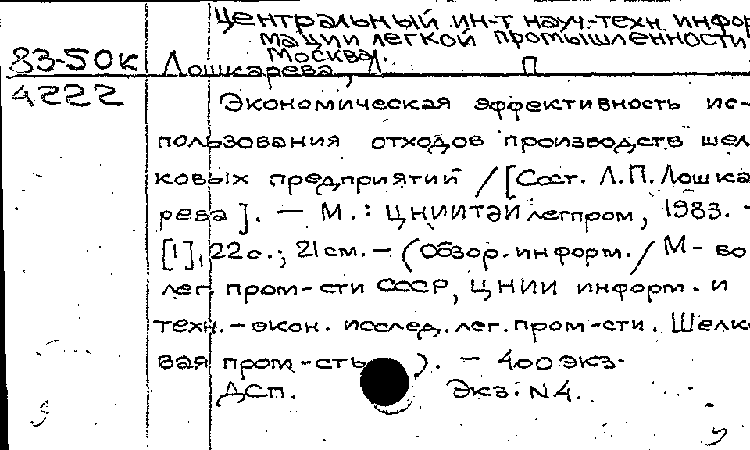 Центральный ин-т науч.-техн. инфор
мации легкой промышленности
Москва.
83-50к Лошкарева, Л. П.
4222 Экономическая эффективность ис-
пользования отходов производств шел
ковых предприятий / [Сост. Л.П. Лошка
рева]. — М.: ЦНИИТЭИлегпром, 1983. -
[1], 22 с.; 21 см. — (Обзор. информ. / М-во
лег. пром-сти СССР, ЦНИИ информ. и
техн.-экон. исслед. лег. пром-сти. Шелко
вая пром-сть ). — 400 экз.
ДСП. Экз. N4.